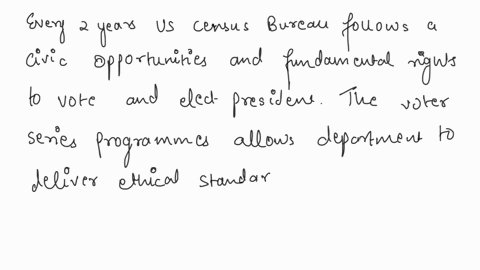 Every 2 years US Census Bureau follows a
Civic opportunities and fundamental rights
to vote and elect president. The voter
series programmes allows department to
deliver ethical standar